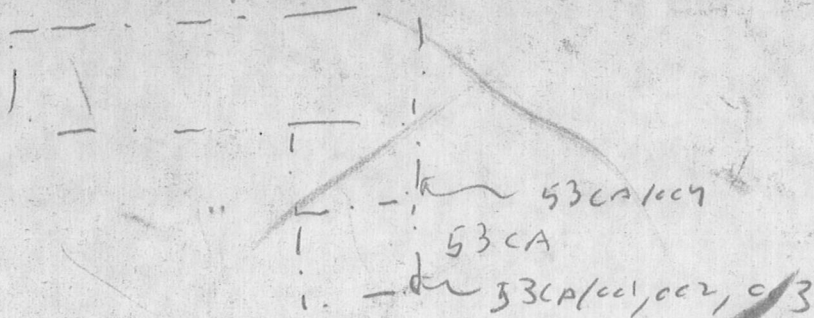 53CA/CC4
53CA
53CA/CC1, CC2, CC3